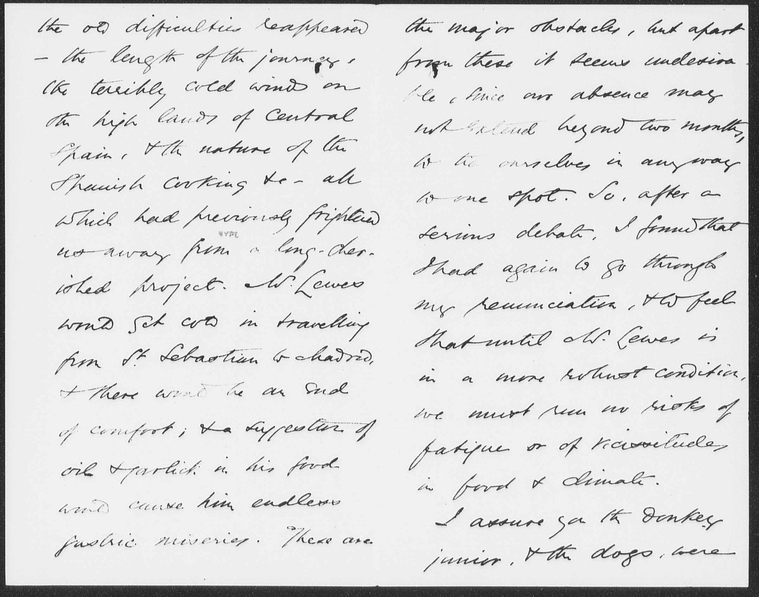 the old difficulties reappeared
— the length of the journey,
the terribly cold winds on
the high lands of Central
Spain, & the nature of the
Spanish cooking &c — all
which had previously frightened
us away from a long-cher-
ished project. Mr. Lewes
would get cold in travelling
from St. Sebastian to Madrid,
& there would be an end
of comfort; & a suggestion of
oil & garlick in his food
would cause him endless
gastric miseries. These are
the major obstacles, but apart
from these it seems undesira-
ble, since our absence may
not extend beyond two months,
to tie ourselves in any way
to one spot. So, after a
serious debate, I found that
I had again to go through
my renunciation, & to feel
that until Mr. Lewes is
in a more robust condition,
we must run no risks of
fatigue or of vicissitudes
in food & climate.
I assure you the Donkey
junior, & the dogs, were